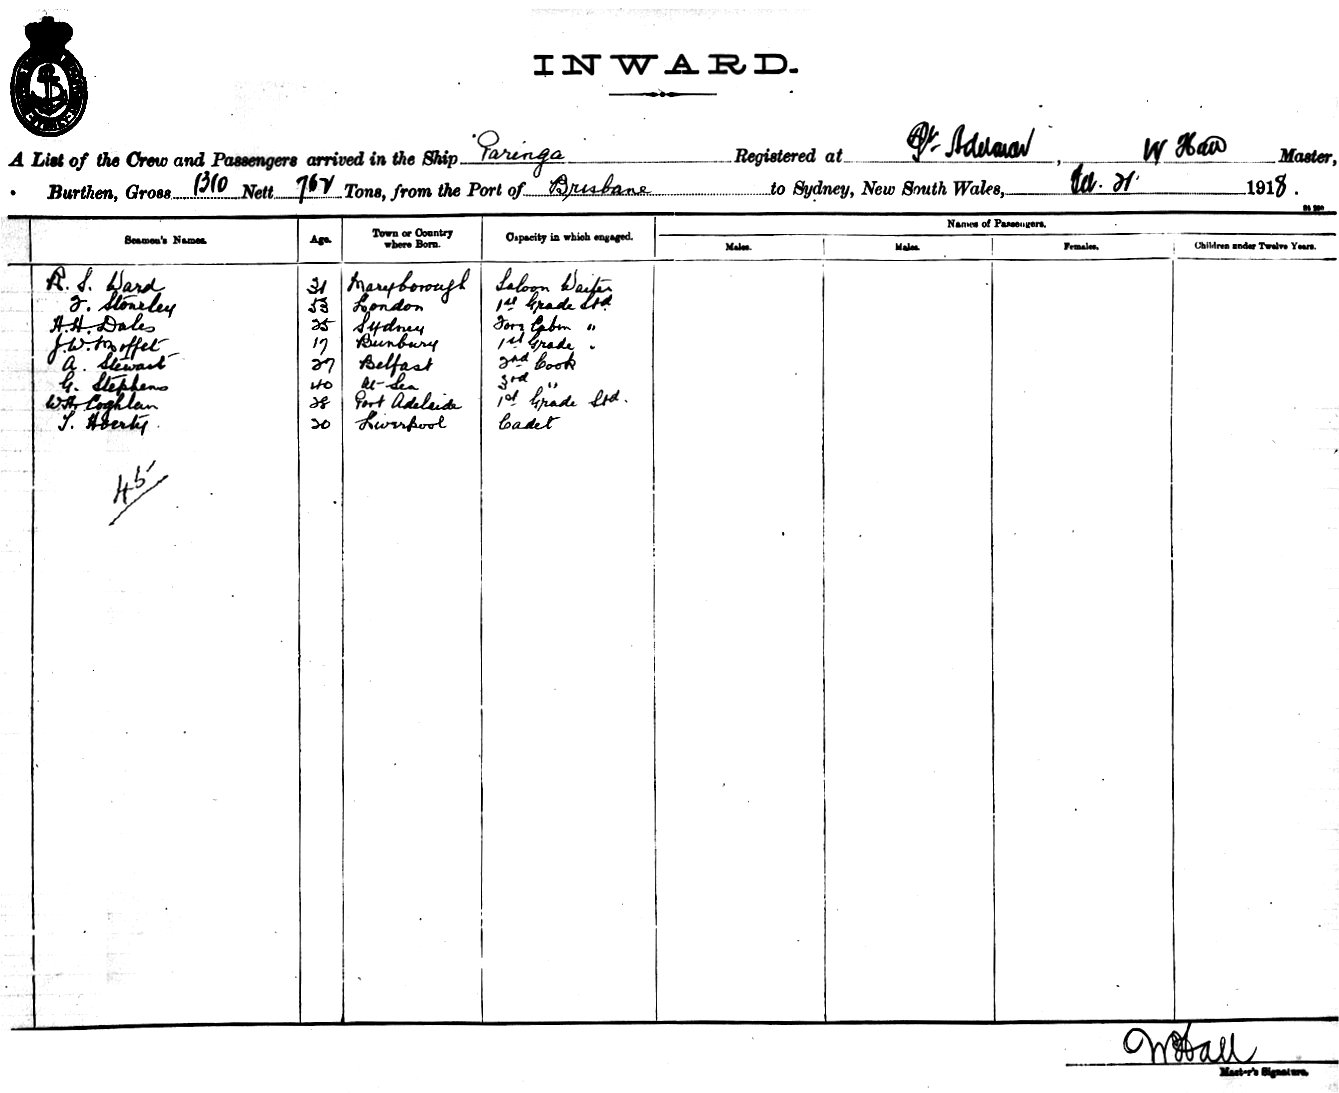 INWARD.
A List of the Crew and Passengers arrived in the Ship Paringa Registered at Pt. Adelaide, W Hall Master,
Burthen, Gross 1310 Nett 762 Tons, from the Port of Brisbane to Sydney, New South Wales, 21 1918.
Seamen's Names. Age. Town or Country where Born. Capacity in which engaged. Names of Passengers.
Males. Males. Females. Children under Twelve Years.
R. S. Ward 31 Maryborough Saloon Waiter
F. Stoneley 53 London 1st Grade Std
H. H. Dales 25 Sydney Cabin "
J. W. Moffet 17 Bunbury 1st Grade "
A. Stewart 27 Belfast 2nd Cook
G. Stephens 40 At Sea 3rd "
W. H. Coghlan 28 Port Adelaide 1st Grade Std.
T. 20 Liverpool Cadet
45
W Hall
Master's Signature.